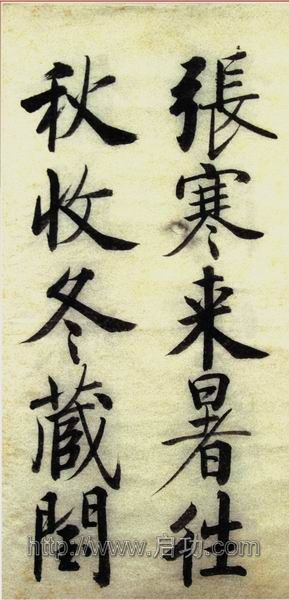 張寒来暑往
秋收冬蔵閏
http://www.启功.com